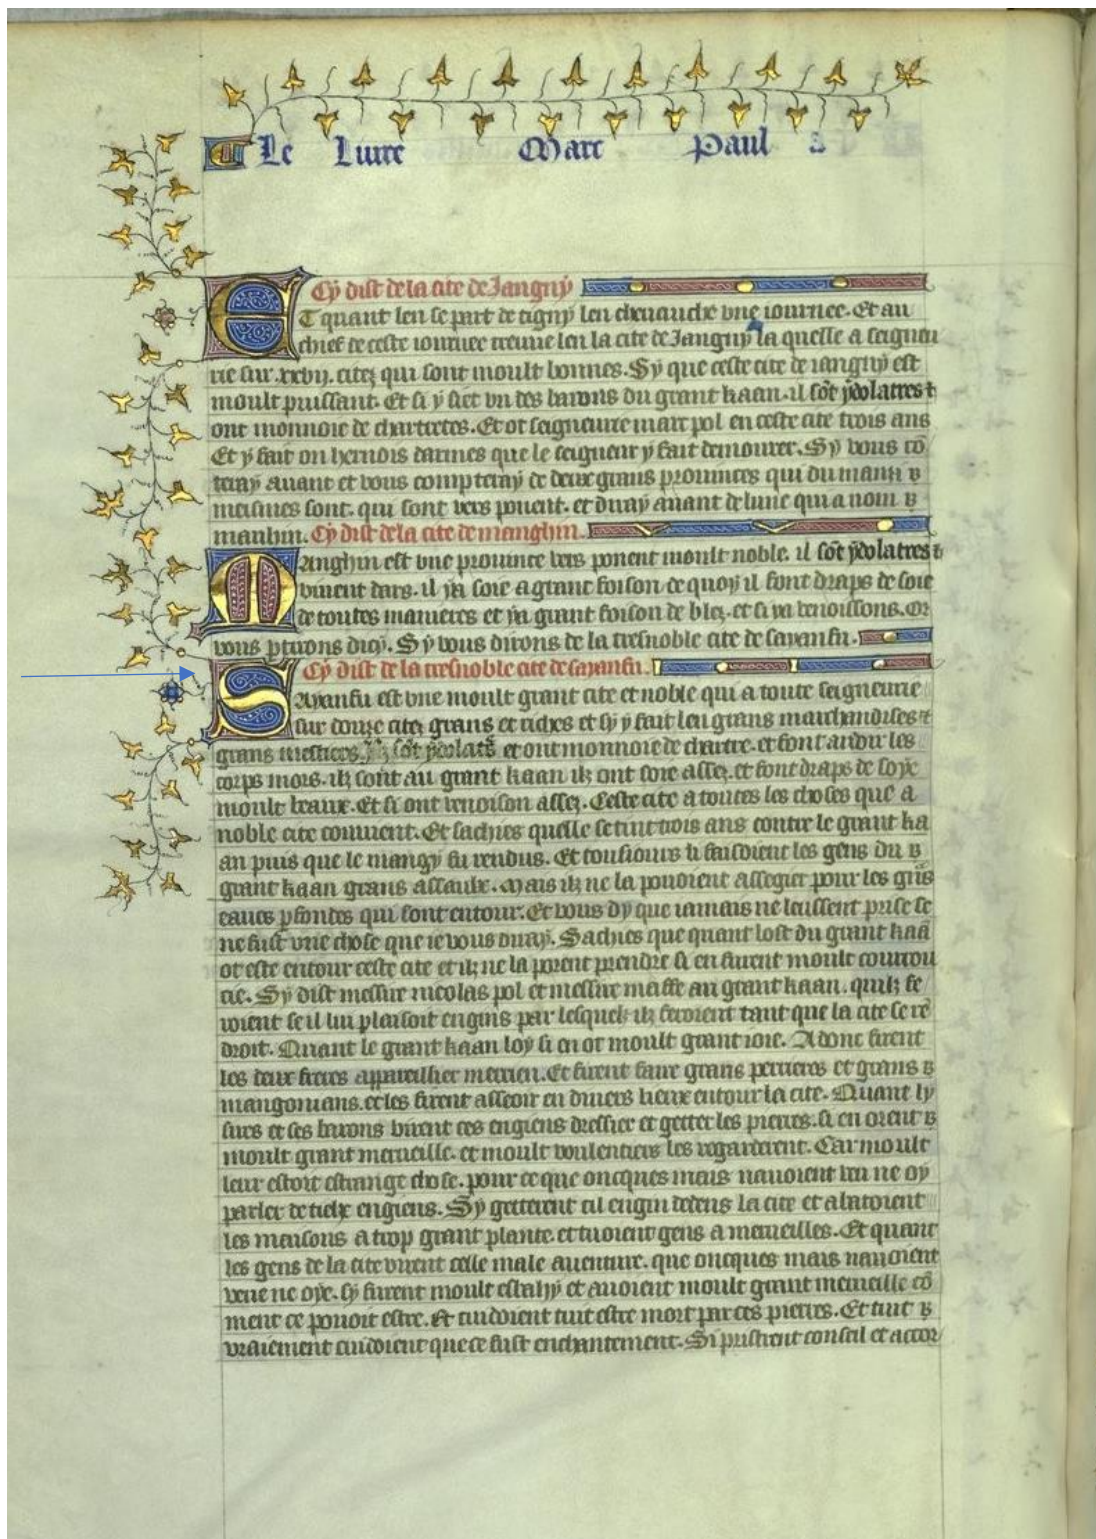 Le Liure Marc Paul
Cy dist de la cite de Jangny
ET quant len se part de tigny len cheuauche vne iournee. Et au
chief de ceste iournee treuue len la cite de Jangny la quelle a seigneu
rie sur .xxvij. citez qui sont moult bonnes. Sy que ceste cite de iangny est
moult puissant. Et si y siet vn des barons du grant kaan. il sōt ydolatres ⁊
ont monnoie de chartretes. Et ot seigneurie marc pol en ceste cite trois ans
Et y fait on hernois darmes que le seigneur y fait demourer. Sy vous cō
teray auant et vous compteray de deux grans prouinces qui du manri
meismes sont. qui sont vers ponent. et diray auant de lune qui a nom
manhin. Cy dist de la cite de manghin.
Manghin est vne prouince vers ponent moult noble. il sōt ydolatres ⁊
viuent dars. il ya soie a grant foison de quoy il font draps de soie
de toutes manieres et ya grant foison de blez. et si ya venoissons. Or
vous ꝑtirons dicy. Sy vous dirons de la tresnoble cite de sayanfu.
Cy dist de la tresnoble cite de sayanfu.
Sayanfu est vne moult grant cite et noble qui a toute seigneurie
sur douze citez grans et riches et sy y fait len grans marchandises ⁊
grans mestiers. Ilz sōt ydolatrs et ont monnoie de chartre. et font ardoir les
corps mors. ilz sont au grant kaan ilz ont soie assez. et font draps de soye
moult beaux. Et si ont venoison assez. Ceste cite a toutes les choses que a
noble cite conuient. Et sachies quelle se tint trois ans contre le grant ka
an puis que le mangy fu rendus. Et tousiours li faisoient les gens du
grant kaan grans assaulx. Mais ilz ne la pouoient assegier pour les grās
eaues ꝑfondes qui sont entour. Et vous dy que iamais ne leussent prise se
ne fust vne chose que ie vous diray. Sachies que quant lost du grant kaā
ot este entour ceste cite et ilz ne la porent prendre si en furent moult courrou
cie. Sy dist messire nicolas pol et messire maffe au grant kaan. quilz fe
roient se il lui plaisoit engins par lesquelz ilz feroient tant que la cite se rē
droit. Quant le grant kaan loy si en ot moult grant ioie. Adonc firent
les deux freres appareillier merrien. Et firent faire grans perrieres et grans
mangonians. et les firent asseoir en diuers lieux entour la cite. Quant ly
sires et ses barons virent ces engiens dressier et getter les pierres. si en orent
moult grant merueille. et moult voulentiers les regarderent. Car moult
leur estoit estrange chose. pour ce que oncques mais nauoient veu ne oy
parler de tielx engiens. Sy getterent cil engin dedens la cite et abatoient
les maisons a trop grant plante. et tuoient gens a merueilles. Et quant
les gens de la cite virent celle male auenture. que oncques mais nauoient
veue ne oye. sy furent moult esbahy et auoient moult grant merueille cō
ment ce pouoit estre. Et cuidoient tuit estre mort par ces pierres. Et tuit
vraiement cuidoient que ce fust enchantement. Si pristrent conseil et accor